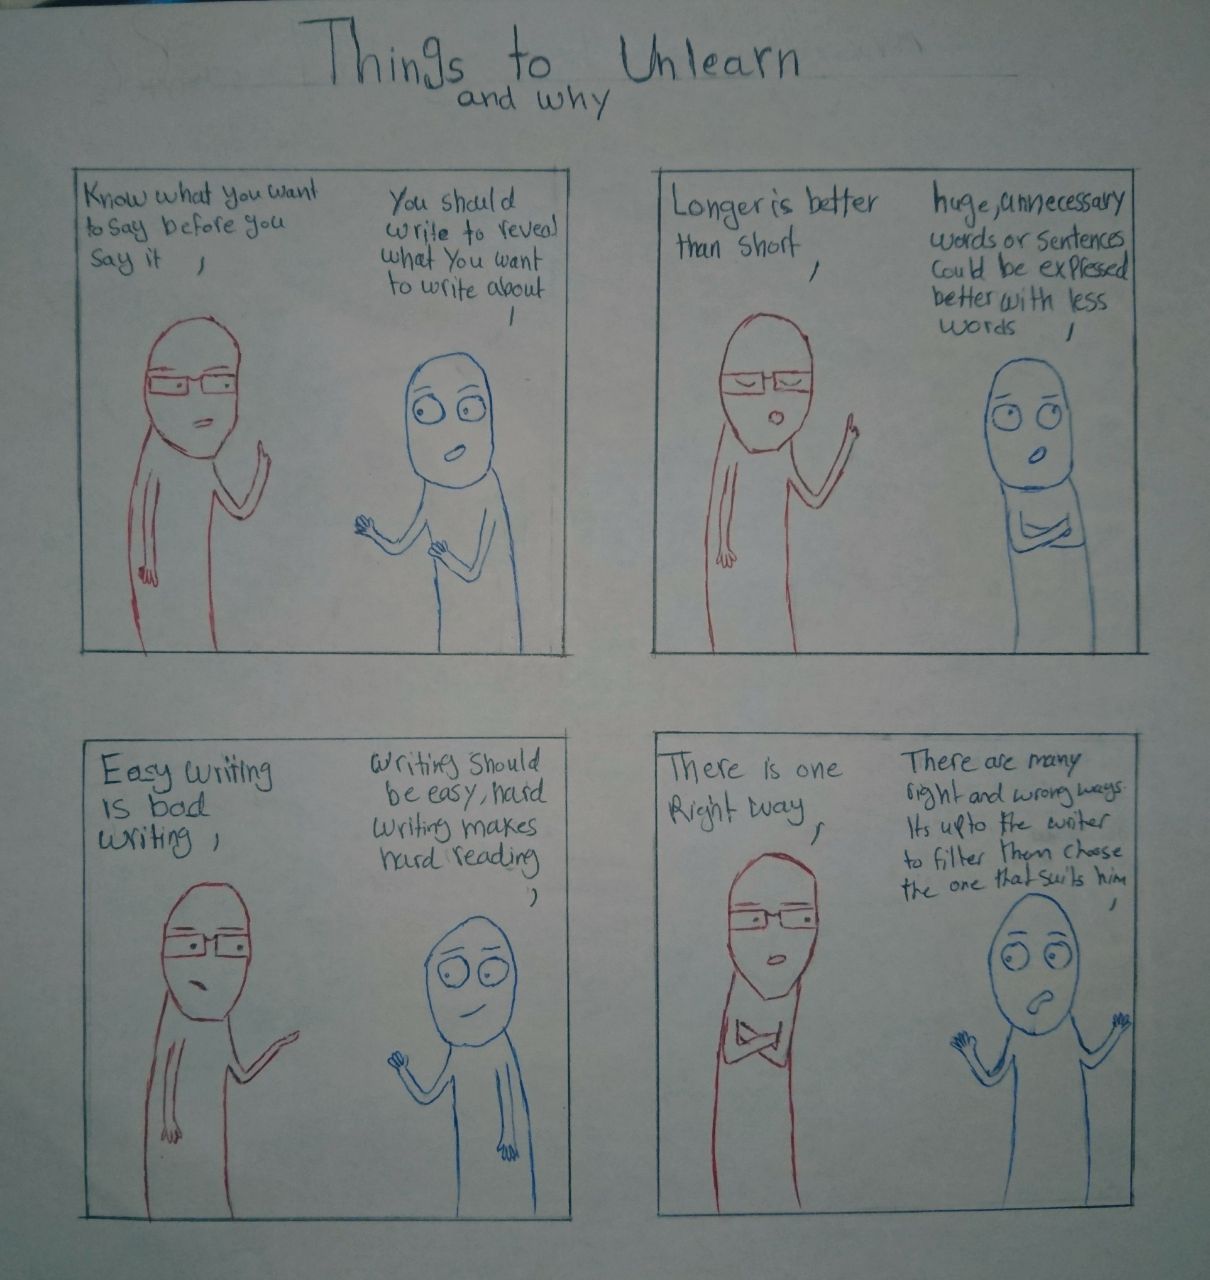 Things to Unlearn
and why
Know what you want
to say before you
say it
You should
write to reveal
what you want
to write about
Longer is better
than short
huge, unnecessary
words or sentences
could be expressed
better with less
words
Easy writing
is bad
writing
writing should
be easy, hard
writing makes
hard reading
There is one
Right way
There are many
right and wrong ways.
Its upto the writer
to filter them choose
the one that suits him